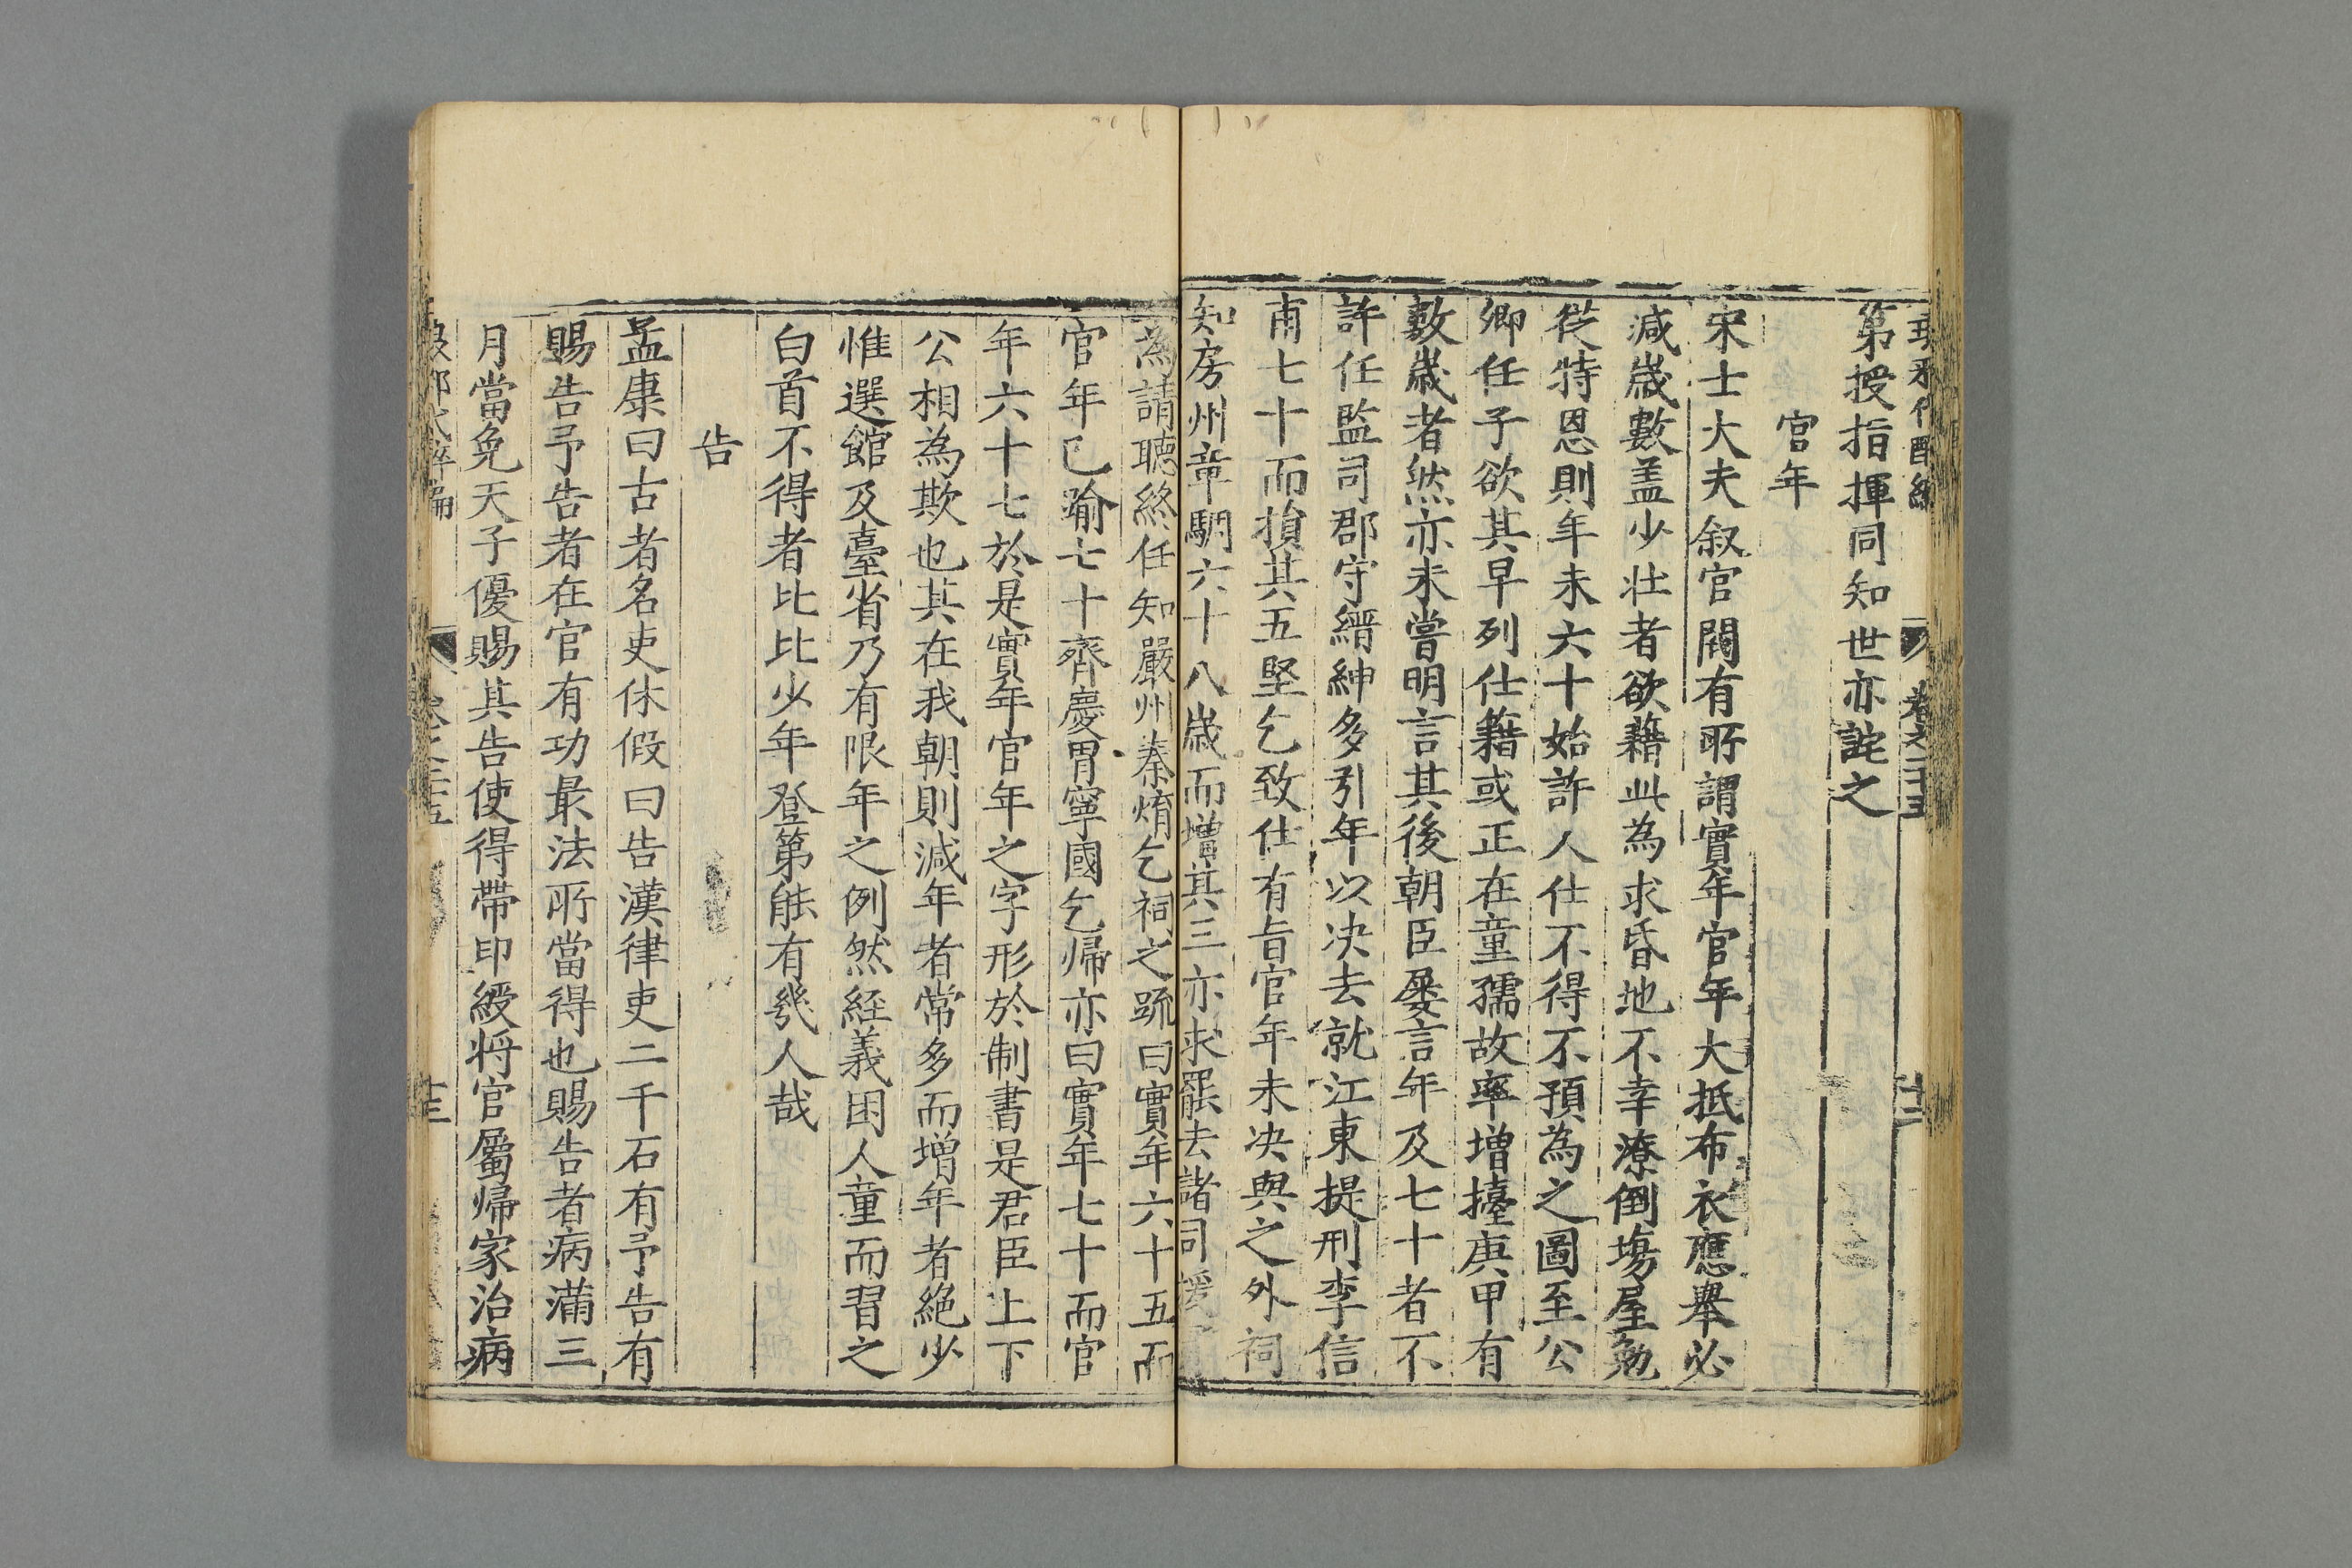 第授指揮同知世亦詫之
官年
宋士大夫叙官閥有所謂實年官年大抵布衣應舉必
減歲數盖少壯者欲藉此為求昏地不幸潦倒塲屋勉
從特恩則年未六十始許人仕不得不預為之圖至公
卿任子欲其早列仕籍或正在童孺故率增擡庚甲有
數歲者然亦未嘗明言其後朝臣屢言年及七十者不
許任監司郡守縉紳多引年以决去就江東提刑李信
甫七十而損其五堅乞致仕有旨官年未决與之外祠
知房州章駉六十八歲而增其三亦求罷去諸司援
為請聴終任知嚴州秦焴乞祠之疏曰實年六十五而
官年已踰七十齊慶胄寧國乞歸亦曰實年七十而官
年六十七於是實年官年之字形於制書是君臣上下
公相為欺也其在我朝則減年者常多而增年者絕少
惟選館及臺省乃有限年之例然経義困人童而習之
白首不得者比比少年登第能有幾人哉
告
孟康曰古者名吏休假曰告漢律吏二千石有予告有
賜告予告者在官有功最法所當得也賜告者病滿三
月當免天子優賜其告使得帶印綬將官屬歸家治病